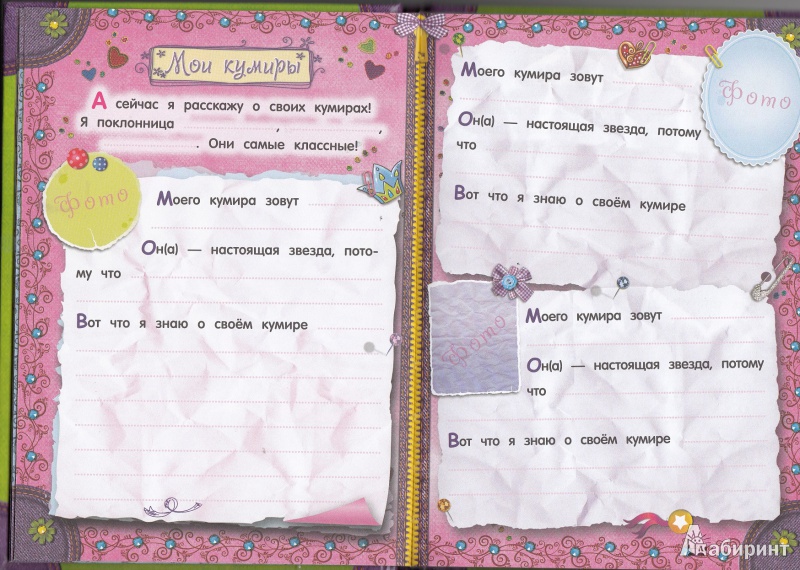 Мои кумиры
А сейчас я расскажу о своих кумирах!
Я поклонница , ,
. Они самые классные!
Фото
Моего кумира зовут
Он(а) — настоящая звезда, пото-
му что
Вот что я знаю о своём кумире
Моего кумира зовут
Фото
Он(а) — настоящая звезда, потому
что
Вот что я знаю о своём кумире
Фото
Моего кумира зовут
Он(а) — настоящая звезда, потому
что
Вот что я знаю о своём кумире
Лабиринт